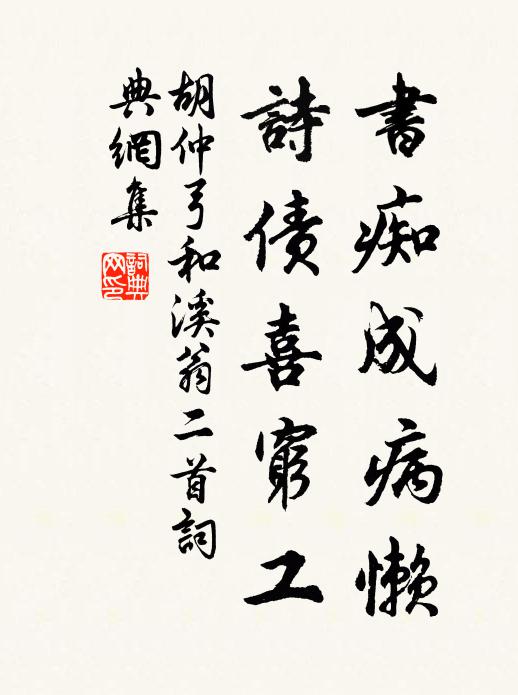 書痴成病懶
詩債喜窮工
胡仲弓和溪翁二首詞
典網集
詞典网印